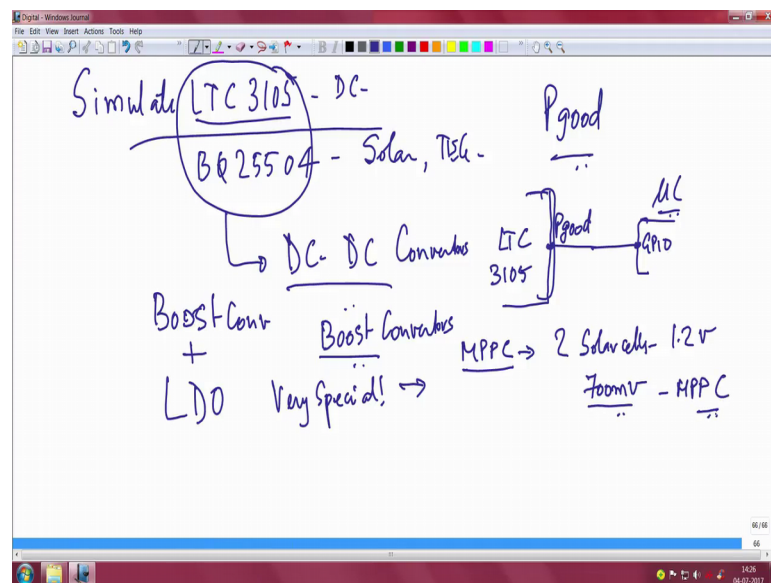 Digital - Windows Journal
File Edit View Insert Actions Tools Help
Simulate LTC 3105 - DC-
BQ25504 - Solar, TEG -
Pgood
DC-DC Convertors
LTC
3105
Pgood
GPIO
μC
Boost Conv
+
LDO
Boost Convertors
Very Special! →
MPPC → 2 Solar cells - 1.2V
700mV - MPPC
66/66
66
14:26
04-07-2017